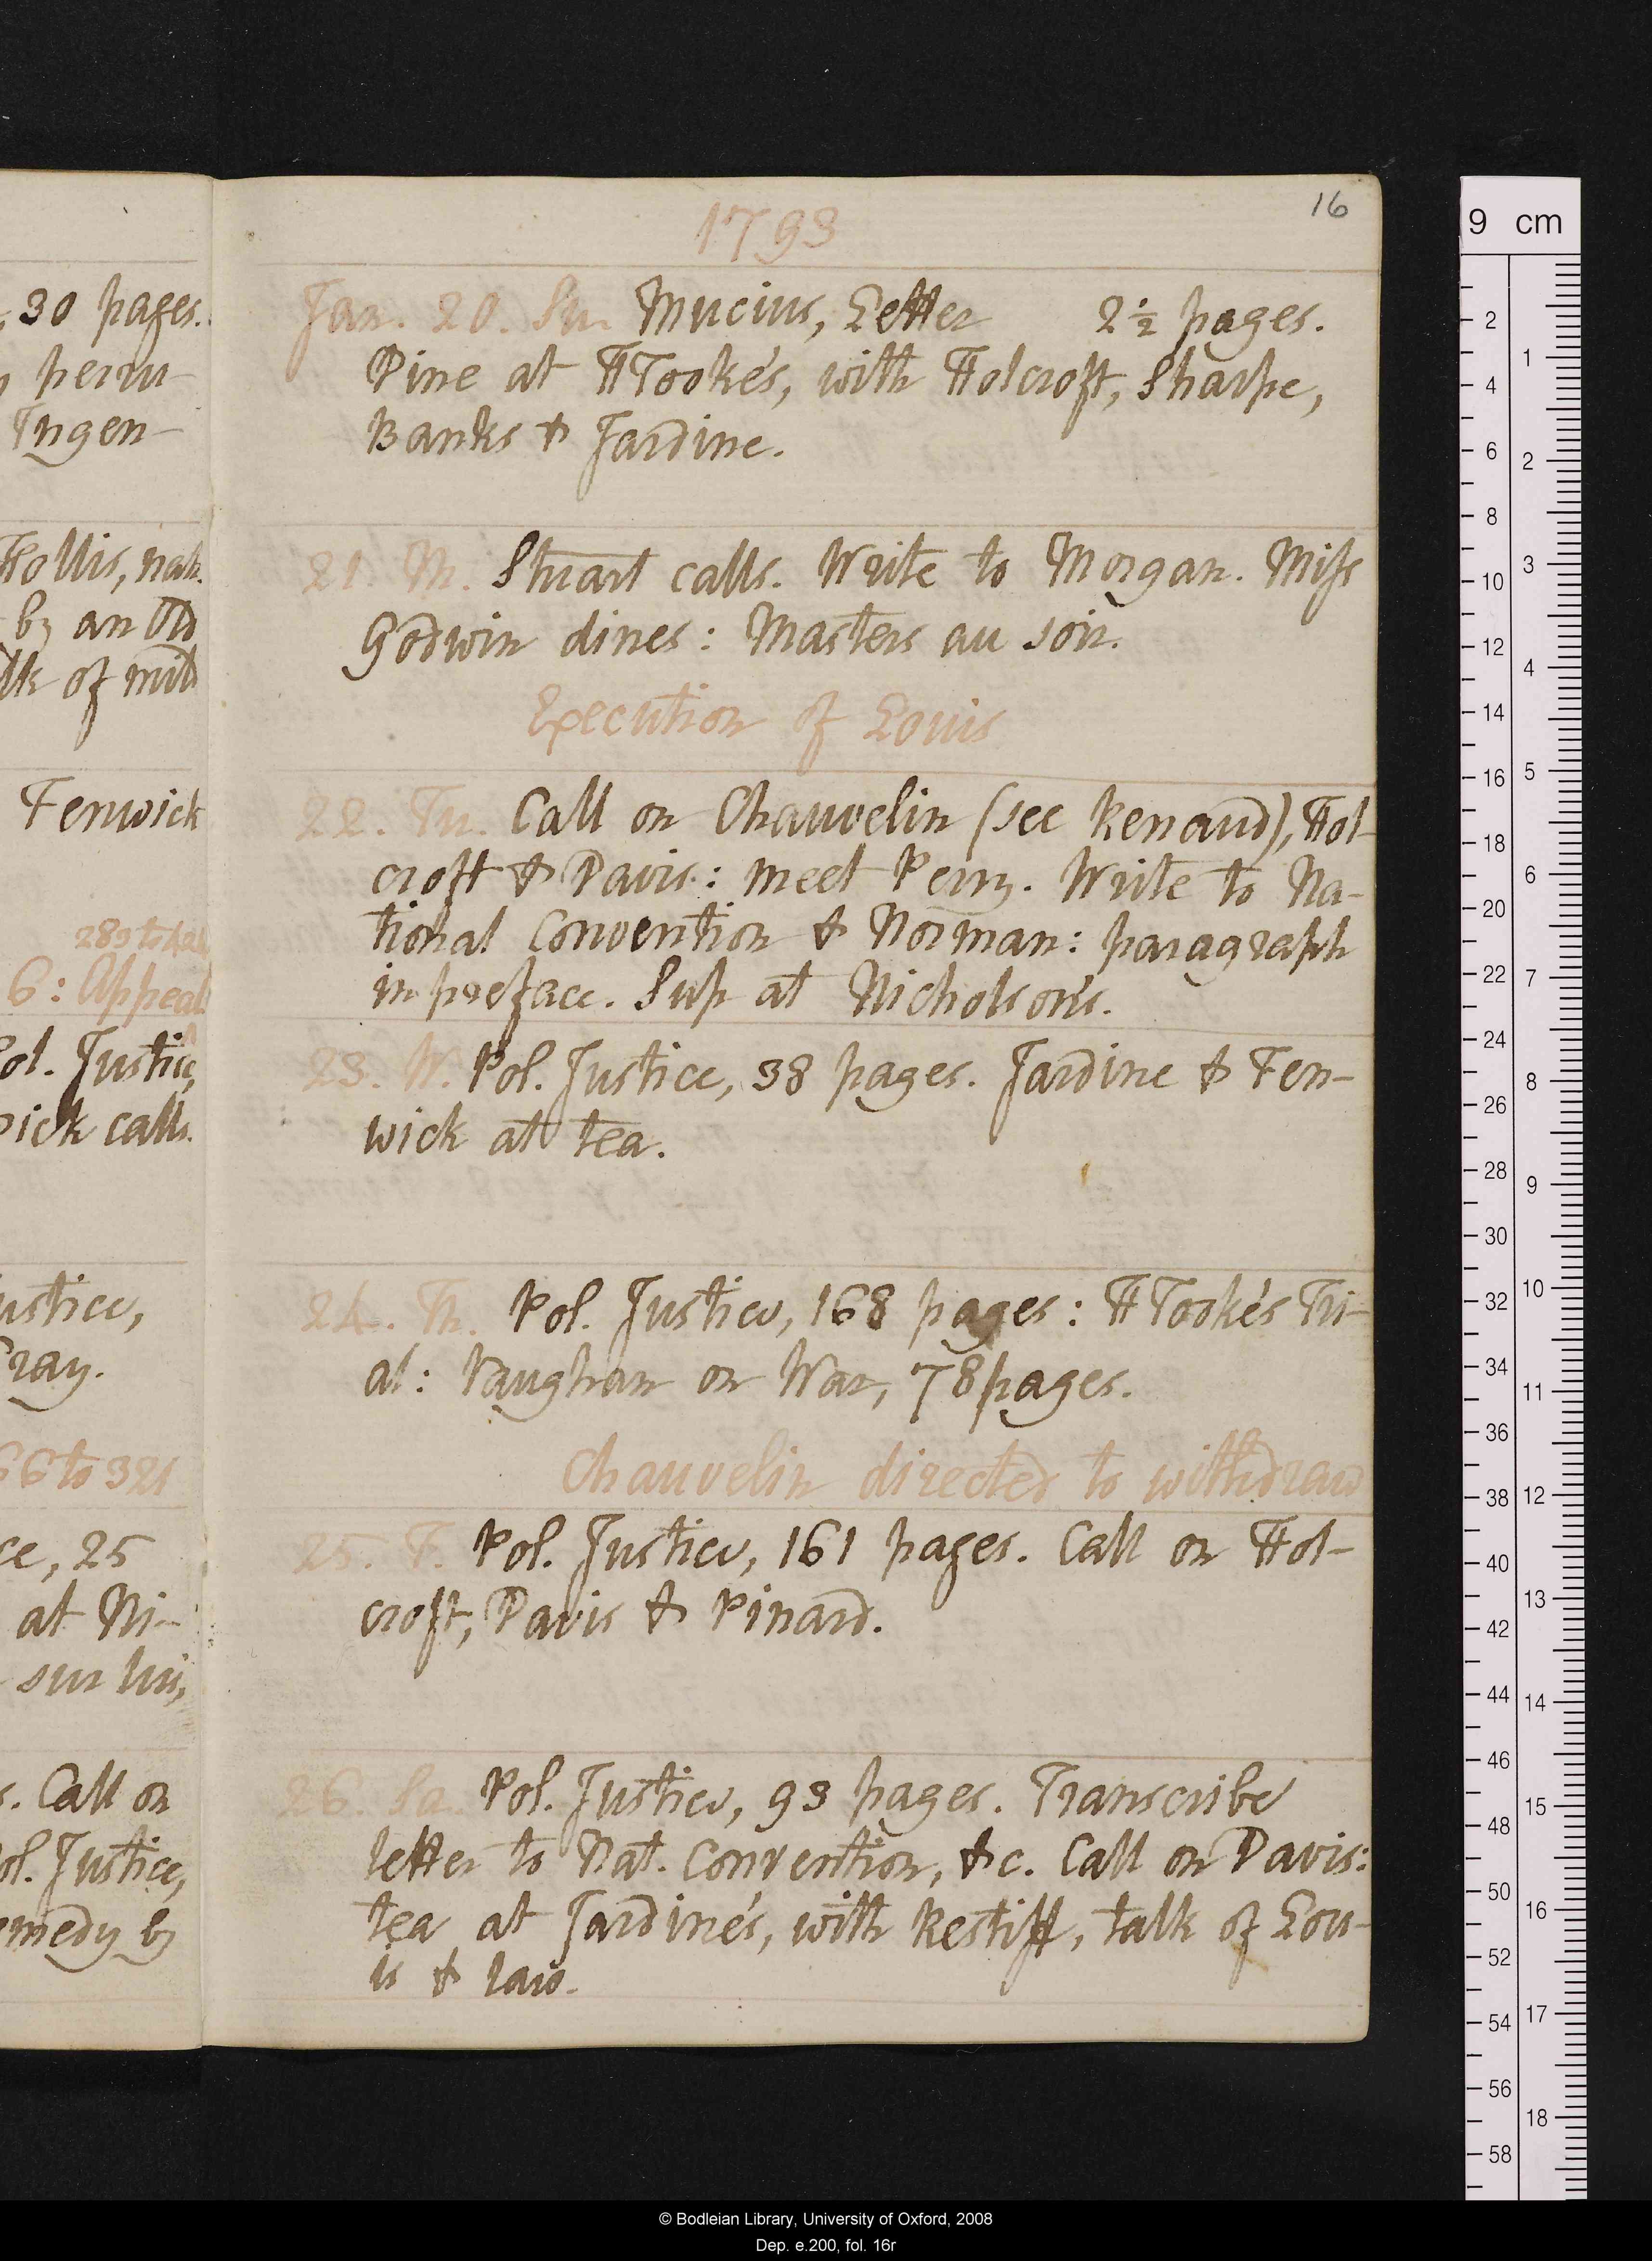 16
1793
Jan. 20. Su. Mucius, Letter 2½ pages.
Dine at HTooke's, with Holcroft, Sharpe,
Banks & Jardine.
21. M. Stuart calls. Write to Morgan. Miss
Godwin dines: Masters au soir.
Execution of Louis
22. Tu. Call on Chauvelin (see Renaud), Hol-
croft & Davis: meet Perry. Write to Na-
tional Convention & Norman: paragraph
in preface. Sup at Nicholson's.
23. W. Pol. Justice, 38 pages. Jardine & Fen-
wick at tea.
24. Th. Pol. Justice, 168 pages: HTooke's Tri-
al: Vaughan on War, 78 pages.
Chauvelin directed to withdraw
25. F. Pol. Justice, 161 pages. Call on Hol-
croft, Davis & Pinard.
26. Sa. Pol. Justice, 93 pages. Transcribe
letter to Nat. Convention, &c. Call on Davis:
tea at Jardine's, with Restiff, talk of Lou-
is & law.
30 pages.
perru-
Ingen-
Hollis, nat.
by an Old
of mid
Fenwick
289 to
6: Appeal
Pol. Justice,
wick calls.
ustice,
ray.
66 to 321
ce, 25
at Ni-
sur lui,
s. Call on
ol. Justice,
medy by
9 cm
2
4
6
8
10
12
14
16
18
20
22
24
26
28
30
32
34
36
38
40
42
44
46
48
50
52
54
56
58
1
2
3
4
5
6
7
8
9
10
11
12
13
14
15
16
17
18
© Bodleian Library, University of Oxford, 2008
Dep. e.200, fol. 16r